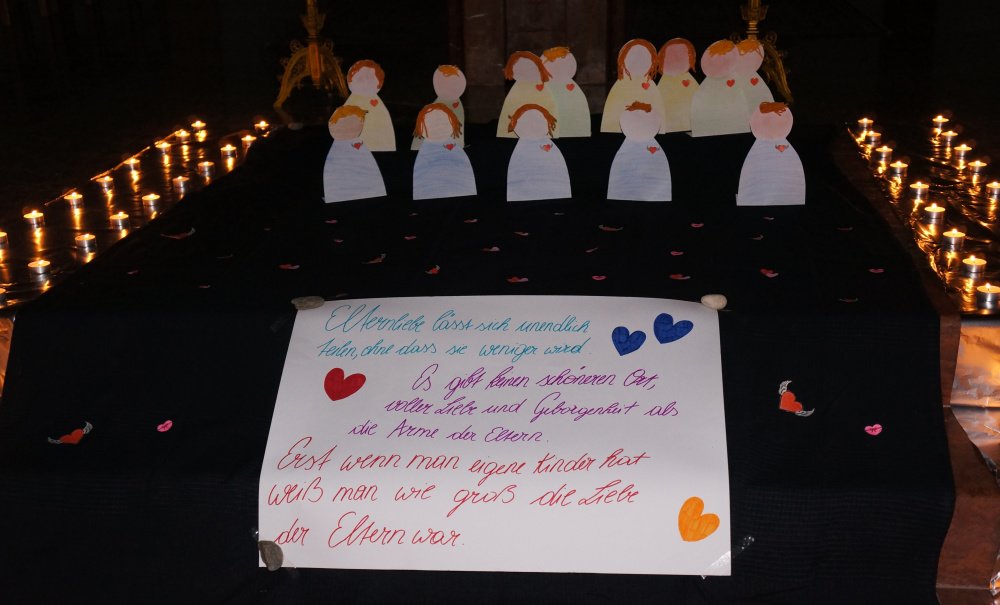 Elternliebe lässt sich unendlich
teilen, ohne dass sie weniger wird.
Es gibt keinen schöneren Ort,
voller Liebe und Geborgenheit als
die Arme der Eltern.
Erst wenn man eigene Kinder hat
weiß man wie groß die Liebe
der Eltern war.